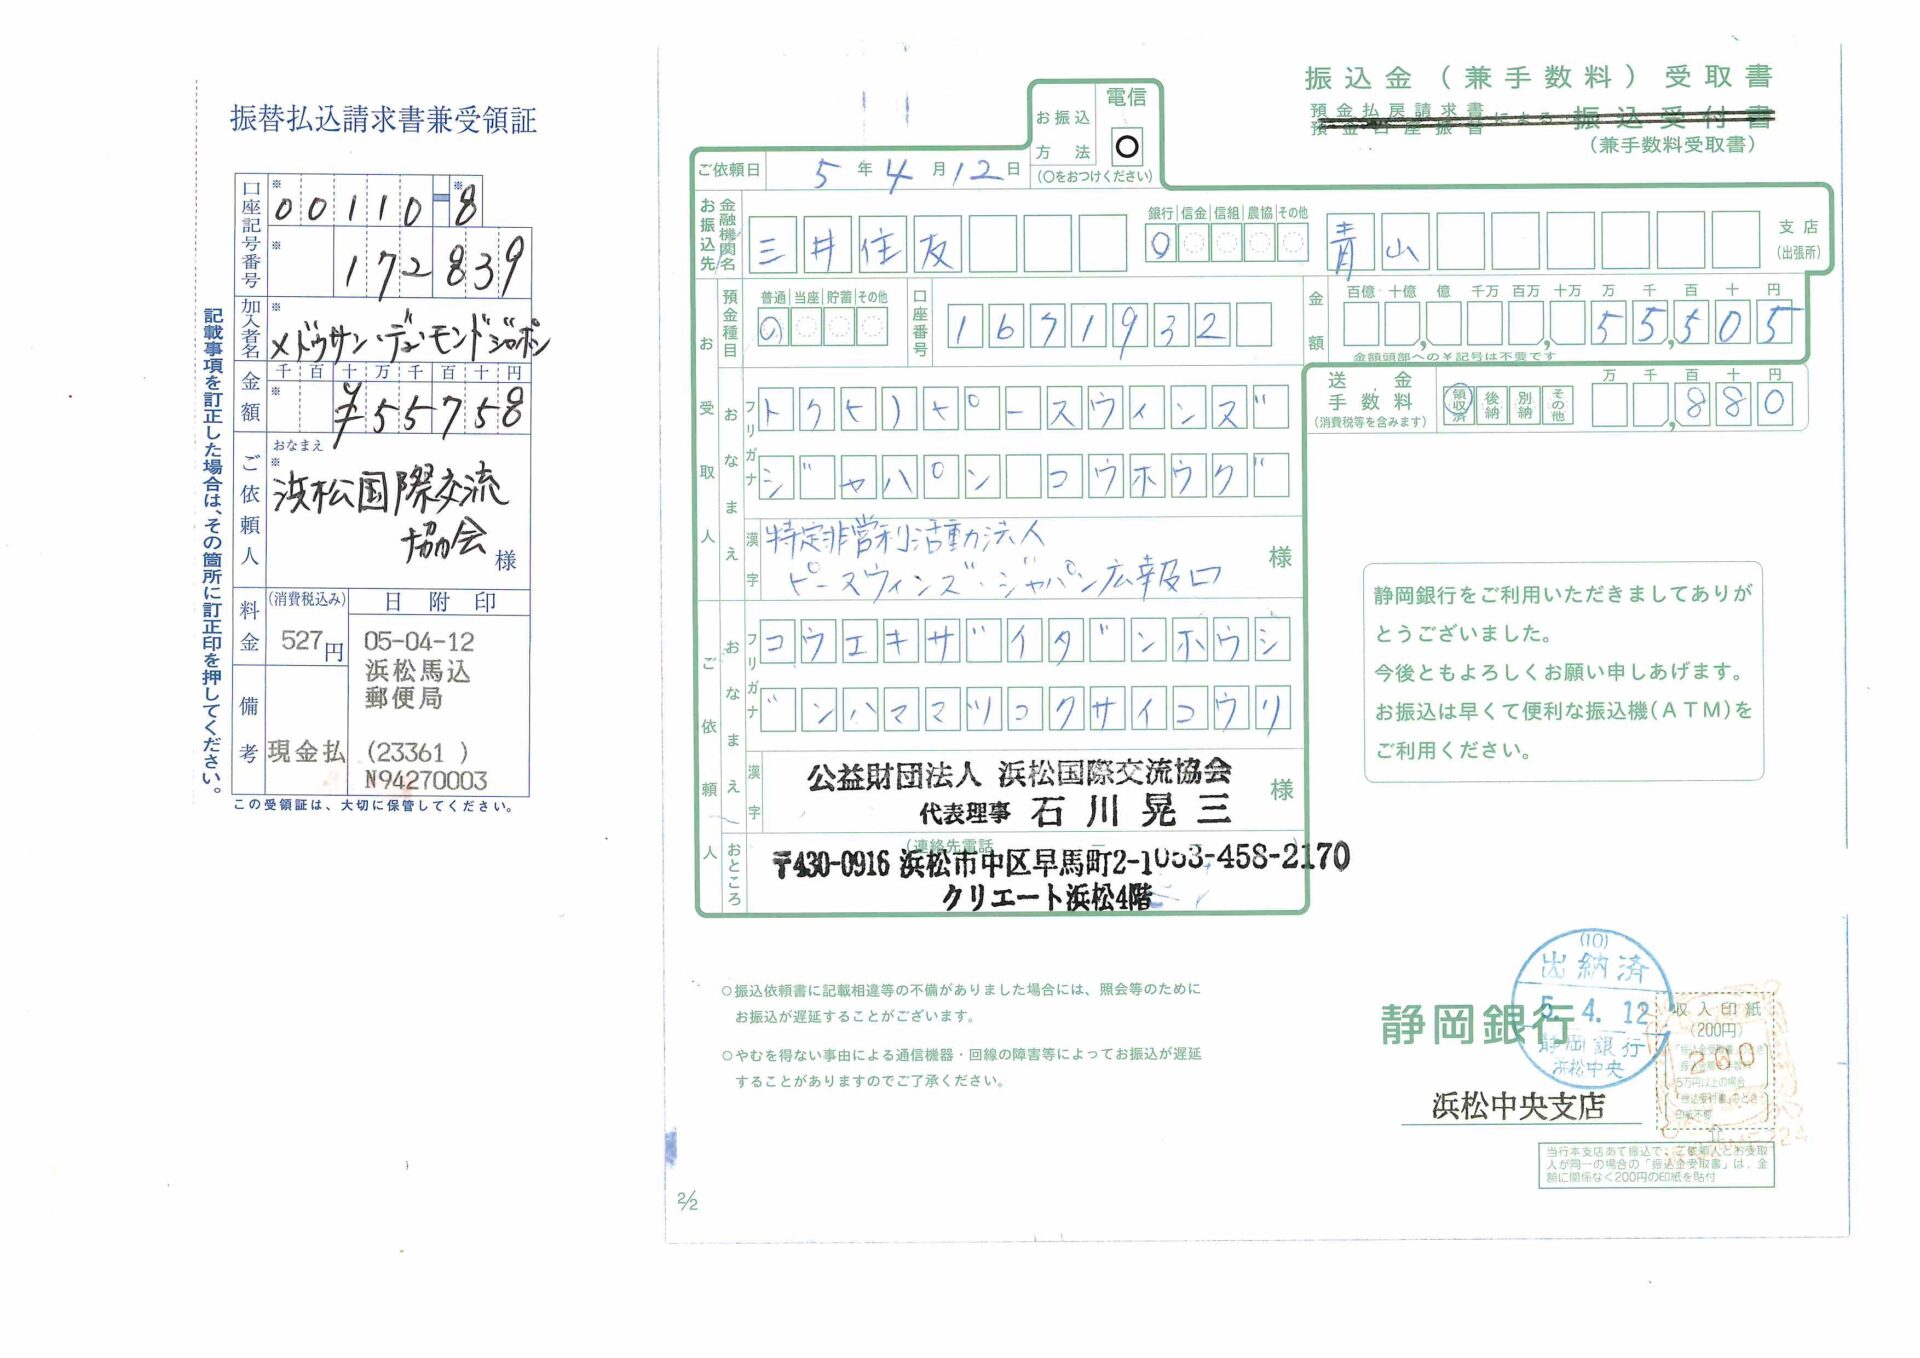 振替払込請求書兼受領証
口座記号番号
※
00110-8
※
172839
加入者名
※
メドゥサン・デュ・モンドジャポン
金額
千百十万千百十円
※
¥55758
ご依頼人
おなまえ
※
浜松国際交流
協会 様
料金
(消費税込み)
527円
日附印
05-04-12
浜松馬込
郵便局
(23361 )
N94270003
備考
現金払
この受領証は、大切に保管してください。
記載事項を訂正した場合は、その箇所に訂正印を押してください。
振込金(兼手数料)受取書
預金払戻請求書
預金口座振替
による 振込受付書
(兼手数料受取書)
お振込方法
電信
○
(○をおつけください)
ご依頼日 5年4月12日
お振込先
金融機関名
三井住友
銀行 信金 信組 農協 その他
青山
支店
(出張所)
預金種目
普通 当座 貯蓄 その他
口座番号
1671932
金額
百億 十億 億 千万 百万 十万 万 千 百 十 円
55,505
金額頭部への¥記号は不要です
送金手数料
(消費税等を含みます)
領収済 後納 別納 その他
万 千 百 十 円
,880
お受取人
おなまえ
フリガナ
トクヒ)ピースウィンズ
ジャパン コウホウグ
漢字
特定非営利活動法人
ピースウィンズ・ジャパン広報口
様
ご依頼人
おなまえ
フリガナ
コウエキザイダンホウジ
ンハママツコクサイコウリ
漢字
公益財団法人 浜松国際交流協会
代表理事 石川晃三
様
おところ
(連絡先電話 ― ― )
〒430-0916 浜松市中区早馬町2-1 053-458-2170
クリエート浜松4階
静岡銀行をご利用いただきましてありが
とうございました。
今後ともよろしくお願い申しあげます。
お振込は早くて便利な振込機(ATM)を
ご利用ください。
○振込依頼書に記載相違等の不備がありました場合には、照会等のために
お振込が遅延することがございます。
○やむを得ない事由による通信機器・回線の障害等によってお振込が遅延
することがありますのでご了承ください。
静岡銀行
浜松中央支店
(10)
出納済
5.4.12
静岡銀行
浜松中央
収入印紙
(200円)
200
5万円以上の場合
印紙不要
当行本支店あて振込で、ご依頼人とお受取
人が同一の場合の「振込金受取書」は、金
額に関係なく200円の印紙を貼付
2/2